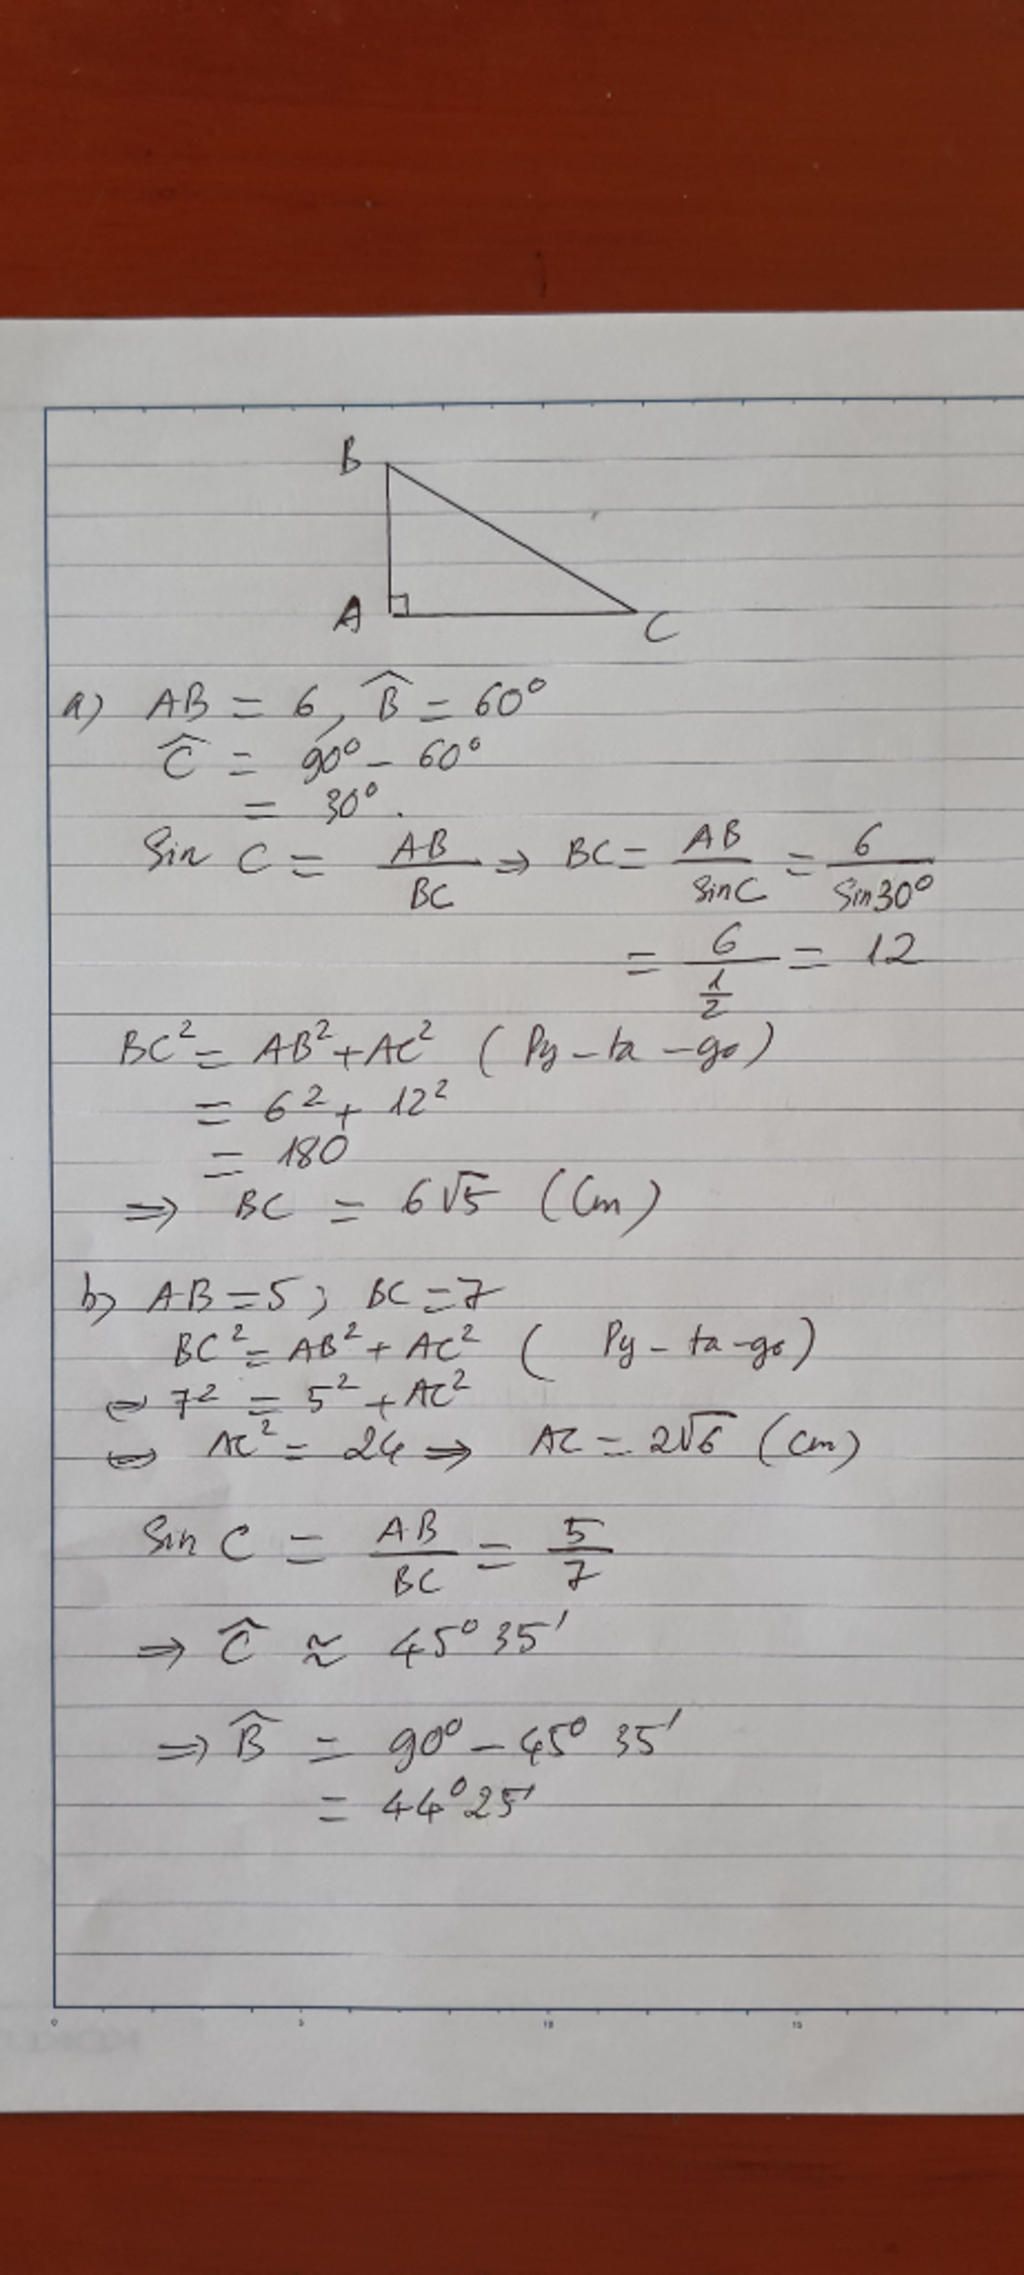 B
A
C
a) AB = 6, B̂ = 60°
Ĉ = 90° - 60°
= 30°.
Sin C = AB/BC ⇒ BC = AB/SinC = 6/Sin30°
= 6/(1/2) = 12
BC² = AB² + AC² (Py-ta-go)
= 6² + 12²
= 180
⇒ BC = 6√5 (Cm)
b) AB = 5; BC = 7
BC² = AB² + AC² (Py-ta-go)
⇔ 7² = 5² + AC²
⇔ AC² = 24 ⇒ AC = 2√6 (Cm)
Sin C = AB/BC = 5/7
⇒ Ĉ ≈ 45°35'
⇒ B̂ = 90° - 45°35'
= 44°25'
0 5 10 15